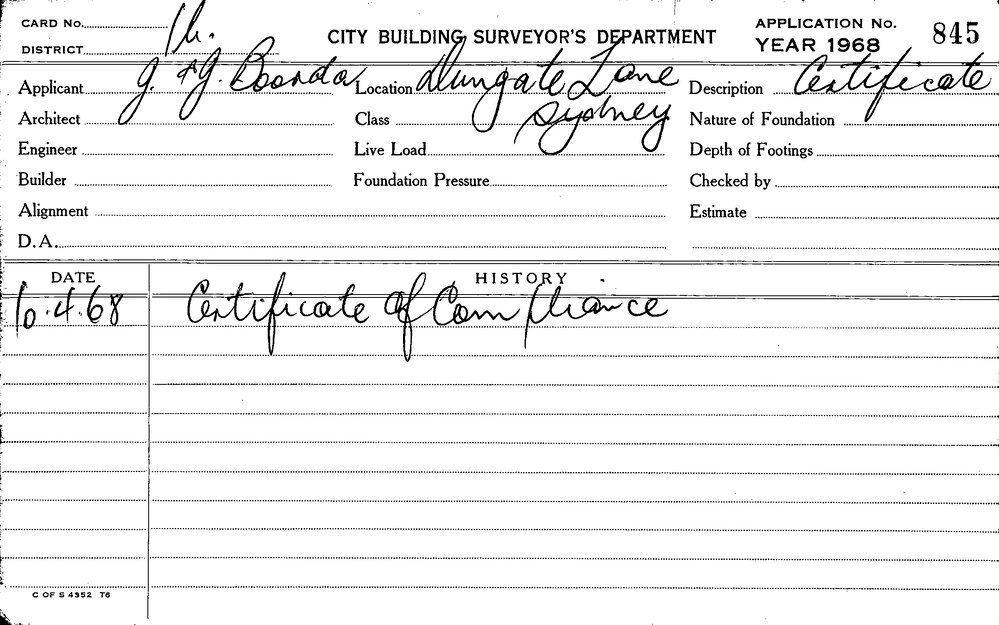 CARD No.
DISTRICT 1h.
CITY BUILDING SURVEYOR'S DEPARTMENT
APPLICATION No. 845
YEAR 1968
Applicant J. & J. Boorda Location Dungate Lane Description Certificate
Architect Class Sydney Nature of Foundation
Engineer Live Load Depth of Footings
Builder Foundation Pressure Checked by
Alignment Estimate
D.A.
DATE HISTORY
10.4.68 Certificate of Compliance
C OF S 4352 T6